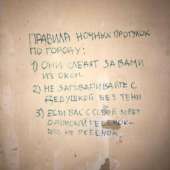 ПРАВИЛА НОЧНЫХ ПРОГУЛОК
ПО ГОРОДУ:
1) ОНИ СЛЕДЯТ ЗА ВАМИ
ИЗ ОКОН.
2) НЕ ЗАГОВАРИВАЙТЕ С
ДЕДУШКОЙ БЕЗ ТЕНИ
3) ЕСЛИ ВАС С СОБОЙ ЗОВЕТ
ОДИНОКИЙ РЕБЕНОК-
ЭТО НЕ РЕБЕНОК.